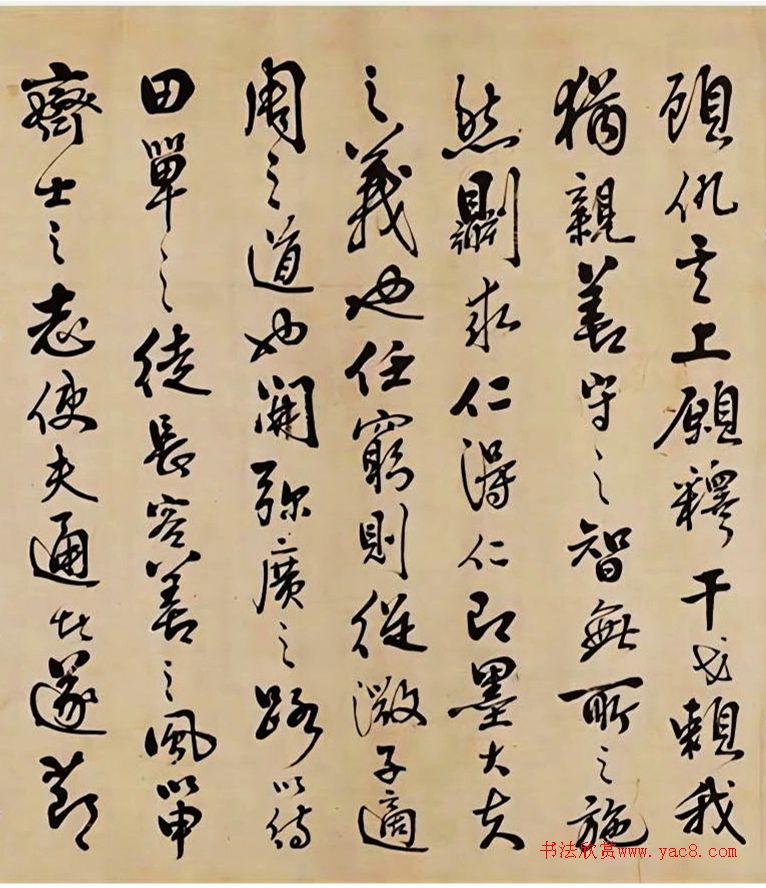 顧仇其上願釋干戈賴我
猶親善守之智無所之施
然則求仁得仁即墨大夫
之義也任窮則從微子適
周之道也開弥廣之路以待
田單之徒長容善之風以申
齊士之志使夫通者遂節
书法欣赏www.yac8.com